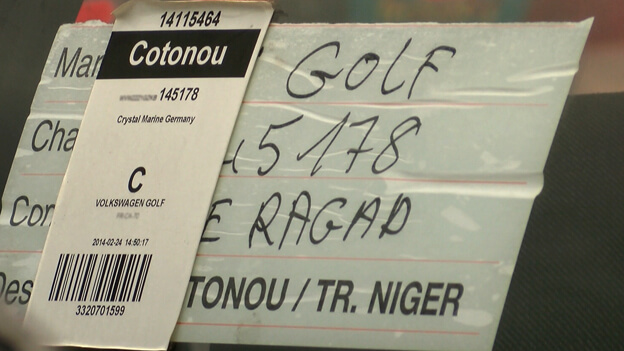 14115464
Cotonou
145178
Crystal Marine Germany
C
VOLKSWAGEN GOLF
2014-02-24 14:50:17
3320701599
Mar GOLF
Cha 45178
Con E RAGAD
Des TONOU / TR. NIGER